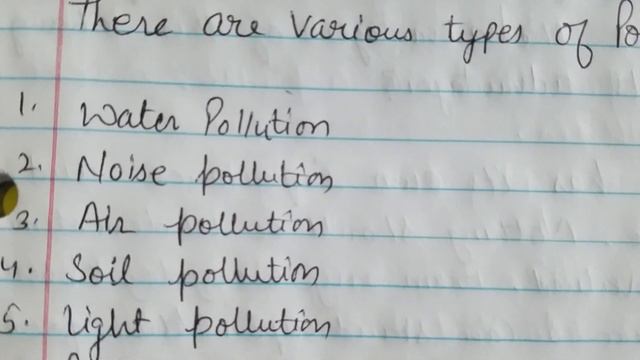 There are various types of Po
1. Water Pollution
2. Noise pollution
3. Air pollution
4. Soil pollution
5. light pollution